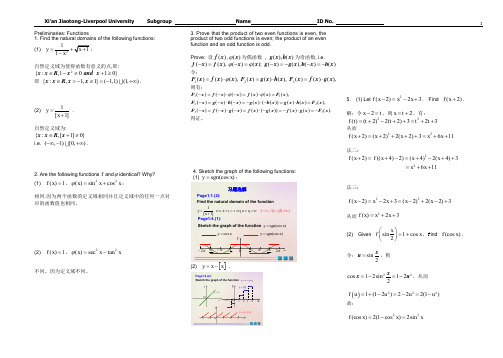 Xi'an Jiaotong-Liverpool University Subgroup Name ID No.
1
Preliminaries: Functions
1. Find the natural domains of the following functions:
(1) y = 1/(1−x²) + √(x+1) .
自然定义域为使得函数有意义的点,即:
{x: x∈R, 1−x² ≠ 0 and x+1 ≥ 0}
即 {x: x∈R, x > −1, x ≠ 1} = (−1,1)∪(1,+∞).
(2) y = 1/[x+1] .
自然定义域为:
{x: x∈R, [x+1] ≠ 0}
i.e. (−∞,−1)∪[0,+∞).
2. Are the following functions f and φ identical? Why?
(1) f(x)=1, φ(x)=sin²x+cos²x;
相同.因为两个函数的定义域相同并且定义域中的任何一点对应的函数值也相同。
(2) f(x)=1, φ(x)=sec²x−tan²x
不同。因为定义域不同。
3. Prove that the product of two even functions is even, the product of two odd functions is even; the product of an even function and an odd function is odd.
Prove: 设 f(x), φ(x)为偶函数, g(x), h(x)为奇函数, i.e.
f(−x)=f(x), φ(−x)=φ(x); g(−x)=−g(x), h(−x)=−h(x)
令:
F₁(x)=f(x)·φ(x), F₂(x)=g(x)·h(x), F₃(x)=f(x)·g(x),
则有:
F₁(−x)=f(−x)·φ(−x)=f(x)·φ(x)=F₁(x),
F₂(−x)=g(−x)·h(−x)=−g(x)·(−h(x))=g(x)·h(x)=F₂(x),
F₃(−x)=f(−x)·g(−x)=f(x)·(−g(x))=−f(x)·g(x)=−F₃(x).
得证。
4. Sketch the graph of the following functions:
(1) y = sgn(cos x);
习题选解
Find the natural domain of the function
Sketch the graph of the function y = sgn(cos x)
y = cos x
y = sgn(cos x)
(2) y = x − [x] .
5. (1) Let f(x−2) = x² − 2x + 3. Find f(x+2).
解: 令 x−2=t, 则 x=t+2, 有:
f(t) = (t+2)² − 2(t+2) + 3 = t² + 2t + 3
从而
f(x+2) = (x+2)² + 2(x+2) + 3 = x² + 6x + 11
法二:
f(x+2) = f((x+4)−2) = (x+4)² − 2(x+4) + 3
= x² + 6x + 11
法三:
f(x−2) = x² − 2x + 3 = (x−2)² + 2(x−2) + 3
从而 f(x) = x² + 2x + 3
(2) Given f(sin x/2) = 1 + cos x. Find f(cos x).
令: u = sin x/2, 则
cos x = 1 − 2sin² x/2 = 1 − 2u². 从而
f(u) = 1 + (1−2u²) = 2 − 2u² = 2(1−u²)
故:
f(cos x) = 2(1 − cos² x) = 2sin² x